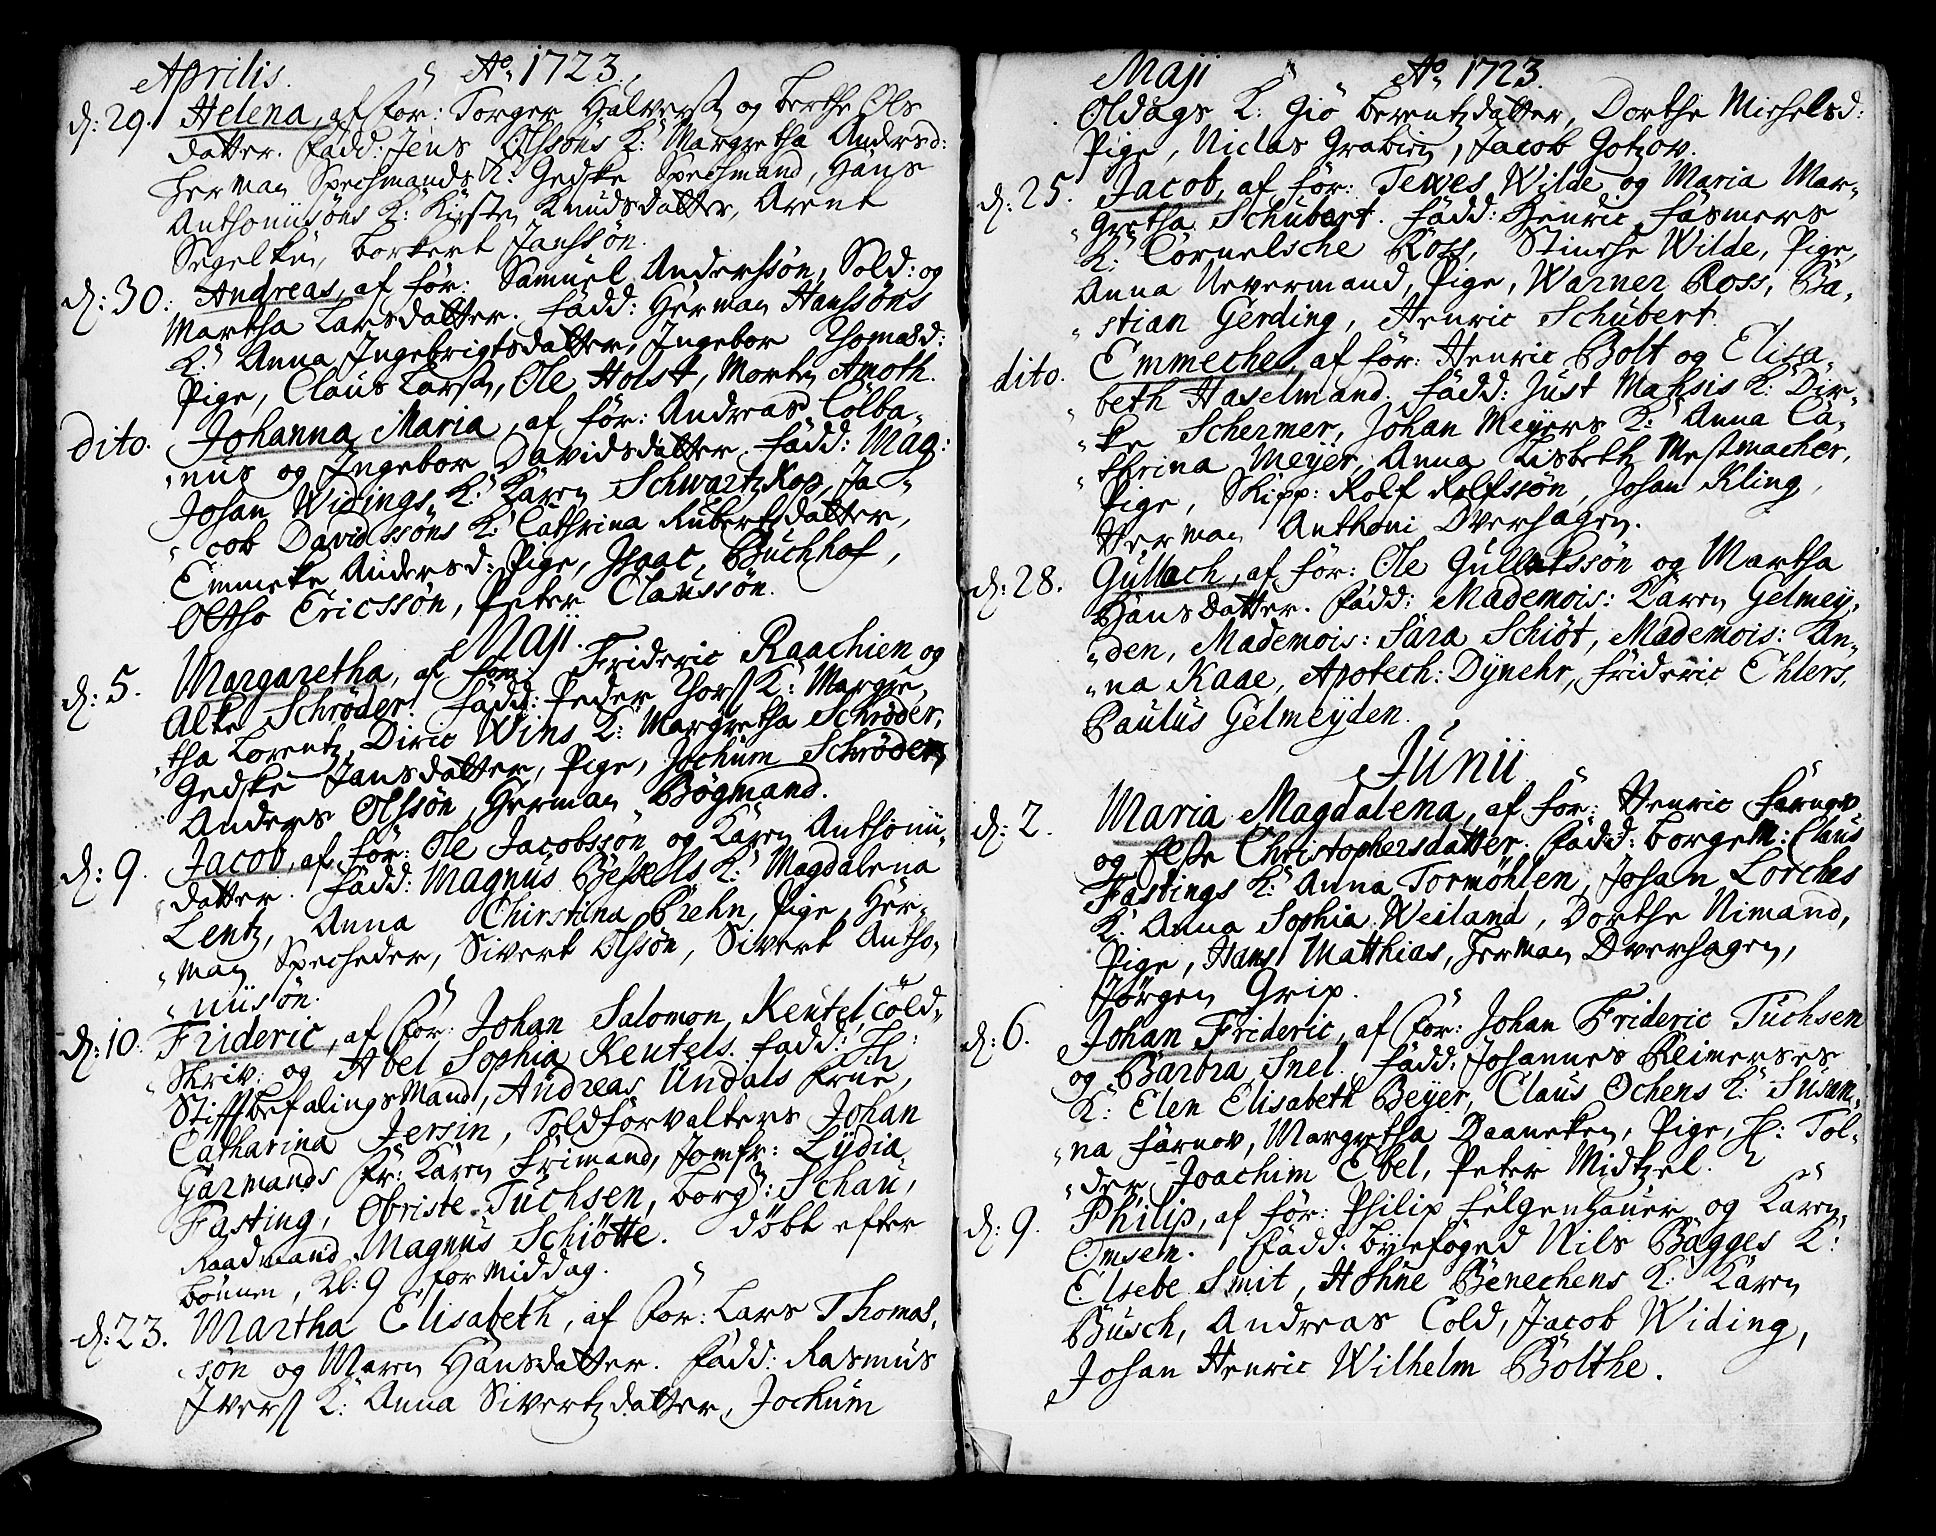 Aprilis. Aº 1723.
d: 29. Helena, af för: Torger Halvers. og Berthe Ols
datter. Fadd: Jens Olssöns K: Margretha Andersd:
Herman Spechmands K: Gedske Spechmand, Hans
Anthoniisöns K: Kirsten Knudsdatter, Arent
Segelken, Borkert Janssön.
d: 30. Andreas, af för: Samuel Anderssön, Sold: og
Martha Larsdatter. Fadd: Herman Hanssöns
K: Anna Ingebrigtsdatter, Ingebor Thomasd:
Pige, Claus Larss., Ole Holst, Morten Amoth.
dito. Johanna Maria, af för: Andreas Colba-
"nus og Ingebor Davidsdatter. Fadd: Mag:
Johan Widings K: Karen Schwartzkop, Ja-
"cob Davidssöns K: Cathrina Rubertsdatter,
Emmeke Andersd: Pige, Isaac Buchhof,
Oltho Ericssön, Peter Claussön.
Maji.
d: 5. Margaretha, af för: Frideric Raachien og
Alke Schrøder. Fadd: Peder Thors. K: Margre-
"tha Lorentz, Diric Wins K: Margretha Schrøder,
Gedske Jansdatter, Pige, Jochum Schrøder,
Anders Olssön, Herman Bøgmand.
d: 9. Jacob, af för: Ole Jacobssön og Karen Anthonii-
"datter. Fadd: Magnus Bessels K: Magdalena
Lentz, Anna Chirstina Brehn, Pige, Her-
"man Specheder, Sivert Olssön, Sivert Antho-
"niisön.
d: 10. Frideric, af för: Johan Salomon Keutel, Told-
"skriv: og Abel Sophia Keutels. Fadd: H:
Stiftbefalings Mand, Andreas Undals Frue,
Catharina Jersin, Toldforvalters Johan
Garmands Fr: Karen Frimand, Jomfr: Lydia
Fasting, Obriste Tuchsen, Borg: Schau,
Raadmand Magnus Schiøtte. Döbt efter
bönnen, Kl: 9 formiddag.
d: 23. Martha Elisabeth, af för: Lars Thomas-
"søn og Maren Hansdatter. Fadd: Rasmus
Ivers. K: Anna Sivertzdatter, Jochum
Maji Aº 1723.
Oldags K: Giö Berentzdatter, Dorthe Michelsd:
Pige, Niclas Grabien, Jacob Gotzov.
d: 25. Jacob, af för: Tewes Wilde og Maria Mar-
"gretha Schubert. Fadd: Henric Fasmers
K: Cornelsche Ross, Stinche Wilde, Pige,
Anna Uevermand, Pige, Warner Ross, Ba-
"stian Gerding, Henric Schubert.
dito. Emmeche, af för: Henric Bolt og Elisa-
"beth Haselmand. Fadd: Just Mahsis K: Dir-
"ke Schermer, Johan Meyers K: Anna Ca-
"thrina Meyer, Anna Lisbeth Mestmacher,
Pige, Skipp: Rolf Rolfssön, Johan Kling,
Herman Anthoni Dverhagen.
d: 28. Gullach, af för: Ole Gullakssön og Martha
Hansdatter. Fadd: Mademois: Karen Gelmey-
"den, Mademois: Sara Schiöt, Mademois: An-
"na Kaae, Apotech: Dynehr, Frideric Ehlers,
Paulus Gelmeyden.
Junii
d: 2. Maria Magdalena, af för: Henric Farnov
og Else Christophersdatter. Fadd: Borgem: Claus
Fastings K: Anna Tormöhlen, Johan Lorches
K: Anna Sophia Weiland, Dorthe Nimand,
Pige, Hans Matthias, Herman Dverhagen,
Jörgen Grip.
d: 6. Johan Frideric, af för: Johan Frideric Tuchsen
og Barbra Snel. Fadd: Johannes Reimerses
K: Elen Elisabeth Beyer, Claus Ochens K: Susan-
"na Farnov, Margretha Daaneken, Pige, H: Tol-
"der Joachim Ebel, Peter Midtzel.
d: 9. Philip, af för: Philip Felgenhauer og Karen
Omsen. Fadd: Byefoged Nils Bagges K:
Elsebe Smit, Höhne Benechens K: Karen
Busch, Andreas Cold, Jacob Widing,
Johan Henric Wilhelm Bölthe.